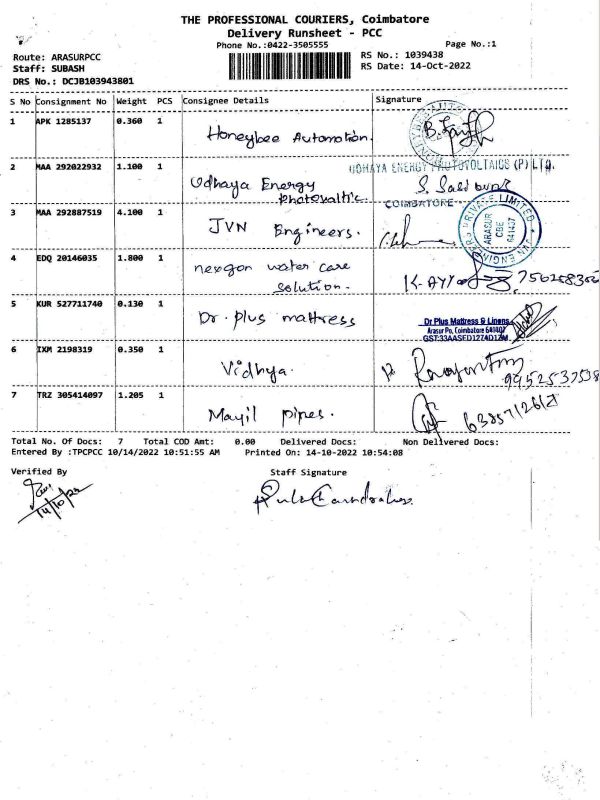 THE PROFESSIONAL COURIERS, Coimbatore
Delivery Runsheet - PCC
Phone No.:0422-3505555
Page No.:1
Route: ARASURPCC
RS No.: 1039438
Staff: SUBASH
RS Date: 14-Oct-2022
DRS No.: DCJB103943801
S No Consignment No Weight PCS Consignee Details Signature
1 APK 1285137 0.360 1
Honeybee Automotion.
2 MAA 292022932 1.100 1
UDHAYA ENERGY PHOTOVOLTAICS (P) LTD.
Udhaya Energy
photovaltic
COIMBATORE
3 MAA 292887519 4.100 1
JVN Engineers.
PRIVATE LIMITED
ARASUR
CBE
641407
JVN ENGINEERS
4 EDQ 20146035 1.800 1
nexgon water care
solution.
5 KUR 527711740 0.130 1
Dr. plus mattress
Dr Plus Mattress & Linens
Arasur Po, Coimbatore 641407
6 IXM 2198319 0.350 1
Vidhya.
9952537538
7 TRZ 305414097 1.205 1
Mayil pipes.
Total No. Of Docs: 7 Total COD Amt: 0.00 Delivered Docs: Non Delivered Docs:
Entered By :TPCPCC 10/14/2022 10:51:55 AM Printed On: 14-10-2022 10:54:08
Verified By Staff Signature
14/10/22